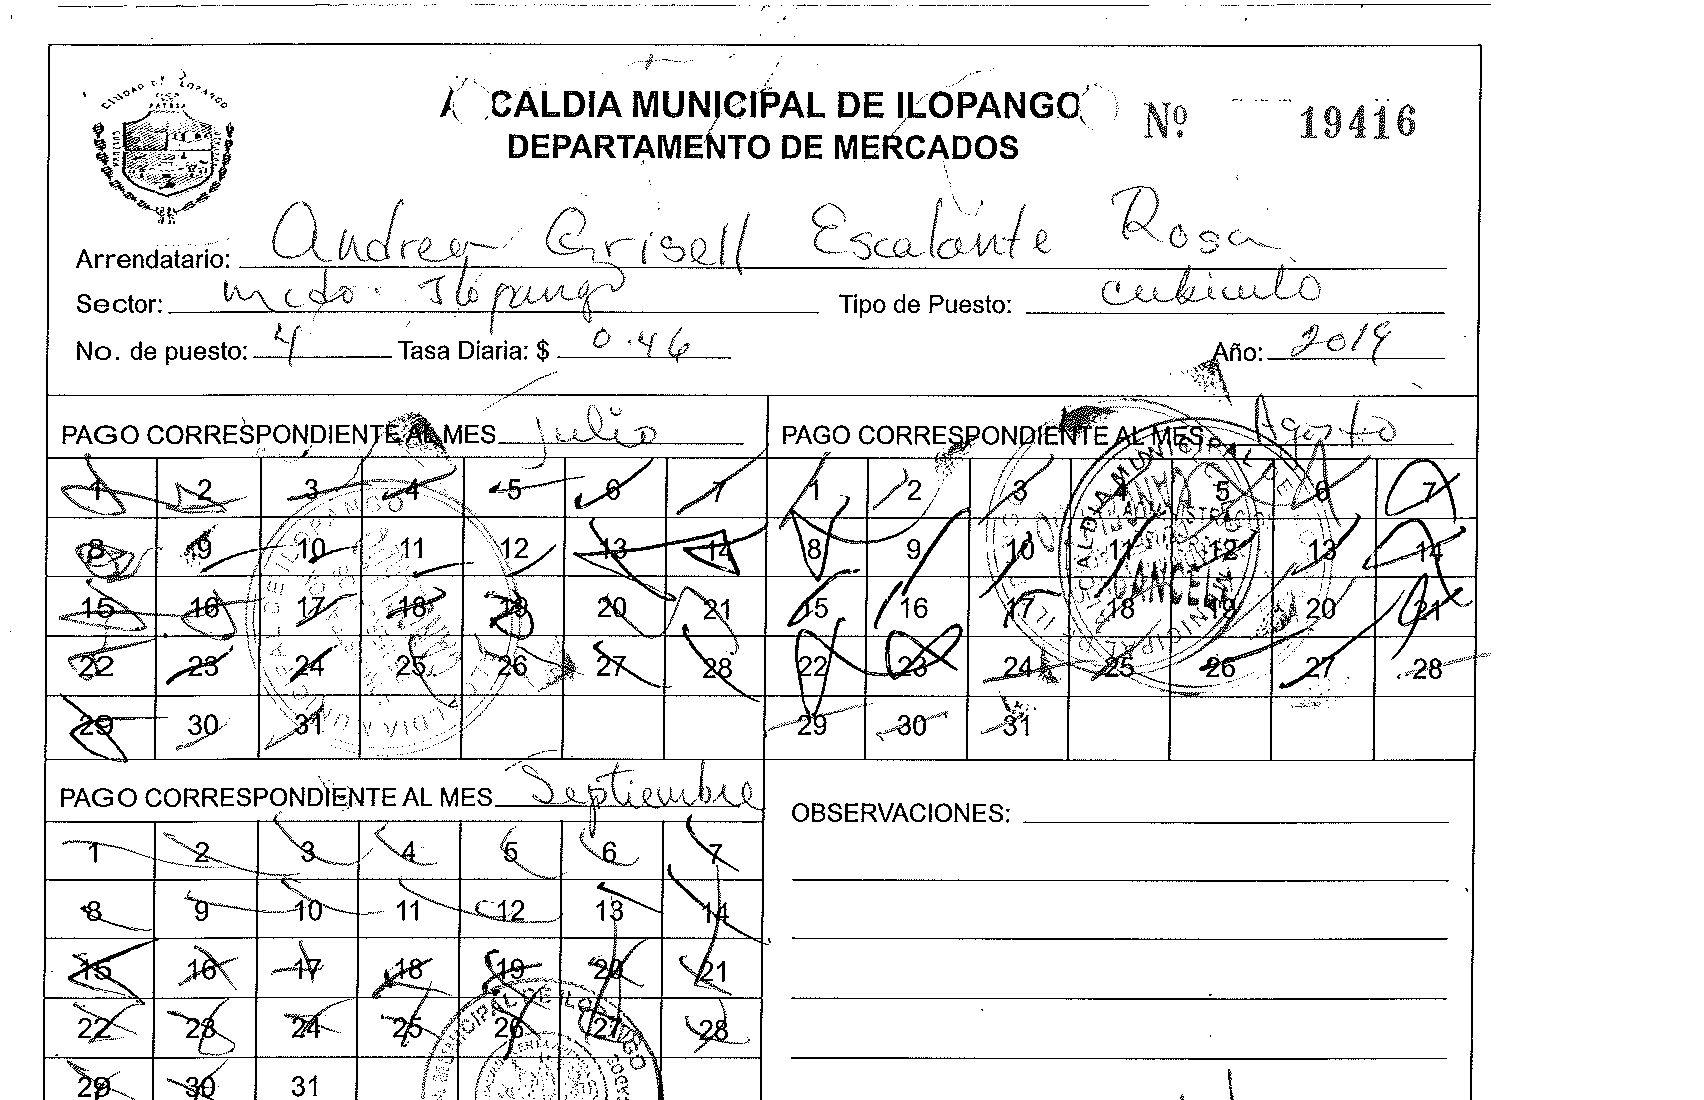 CIUDAD DE ILOPANGO
ALCALDIA MUNICIPAL DE ILOPANGO
Nº 19416
DEPARTAMENTO DE MERCADOS
Arrendatario: Andrea Grisell Escalante Rosa
Sector: mcdo. Ilopango Tipo de Puesto: cubiculo
No. de puesto: 4 Tasa Diaria: $ 0.46 Año: 2019
PAGO CORRESPONDIENTE AL MES Julio
1 2 3 4 5 6 7
8 9 10 11 12 13 14
15 16 17 18 19 20 21
22 23 24 25 26 27 28
29 30 31
PAGO CORRESPONDIENTE AL MES Agosto
1 2 3 4 5 6 7
8 9 10 11 12 13 14
15 16 17 18 19 20 21
22 23 24 25 26 27 28
29 30 31
PAGO CORRESPONDIENTE AL MES Septiembre
1 2 3 4 5 6 7
8 9 10 11 12 13 14
15 16 17 18 19 20 21
22 23 24 25 26 27 28
29 30 31
OBSERVACIONES: